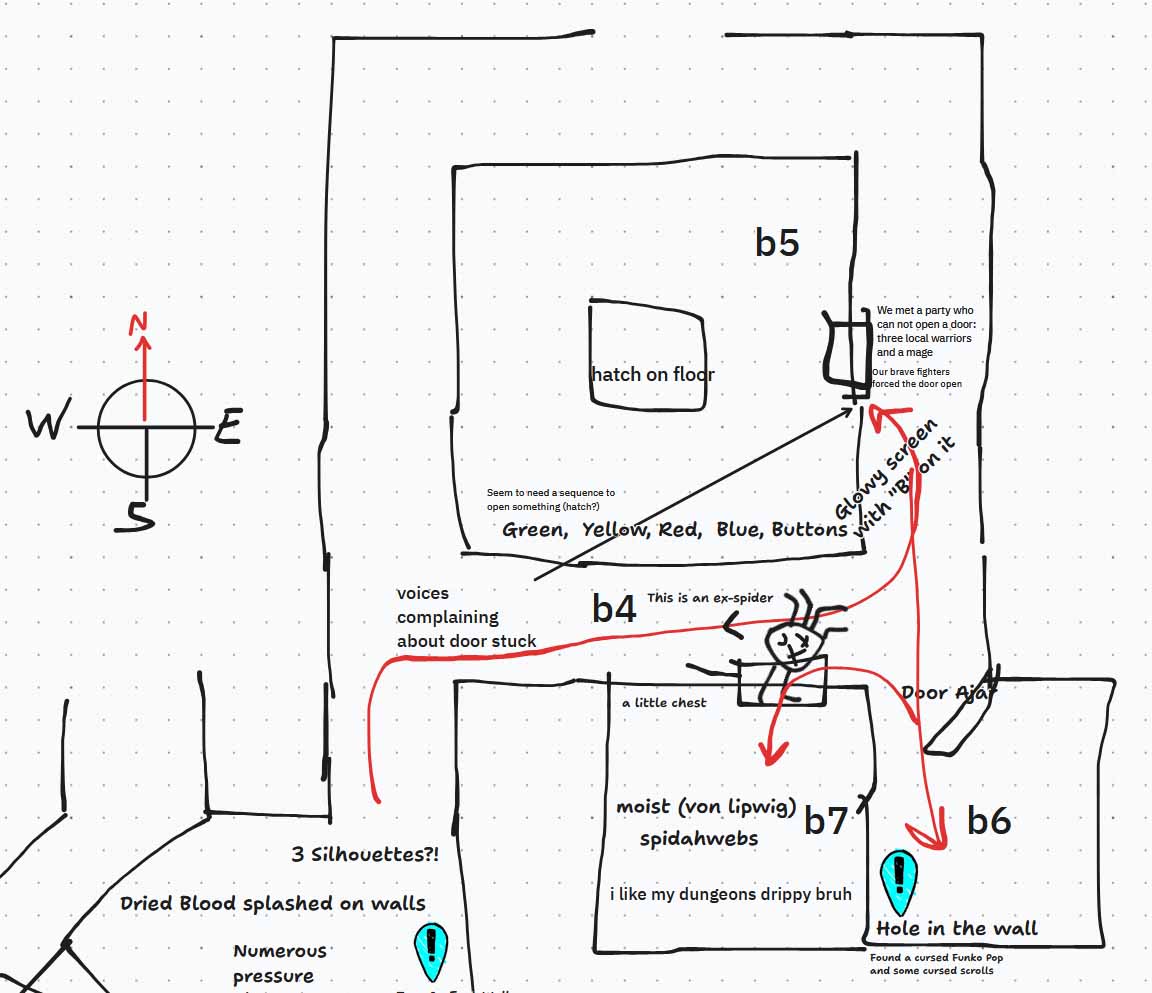 b5
We met a party who
can not open a door:
three local warriors
and a mage
Our brave fighters
forced the door open
N
W
E
S
hatch on floor
Glowy screen
with "B" on it
Seem to need a sequence to
open something (hatch?)
Green, Yellow, Red, Blue, Buttons
voices
complaining
about door stuck
b4
This is an ex-spider
a little chest
Door Ajar
moist (von lipwig)
spidahwebs
b7
b6
i like my dungeons drippy bruh
3 Silhouettes?!
Dried Blood splashed on walls
Numerous
pressure
!
!
Hole in the wall
Found a cursed Funko Pop
and some cursed scrolls